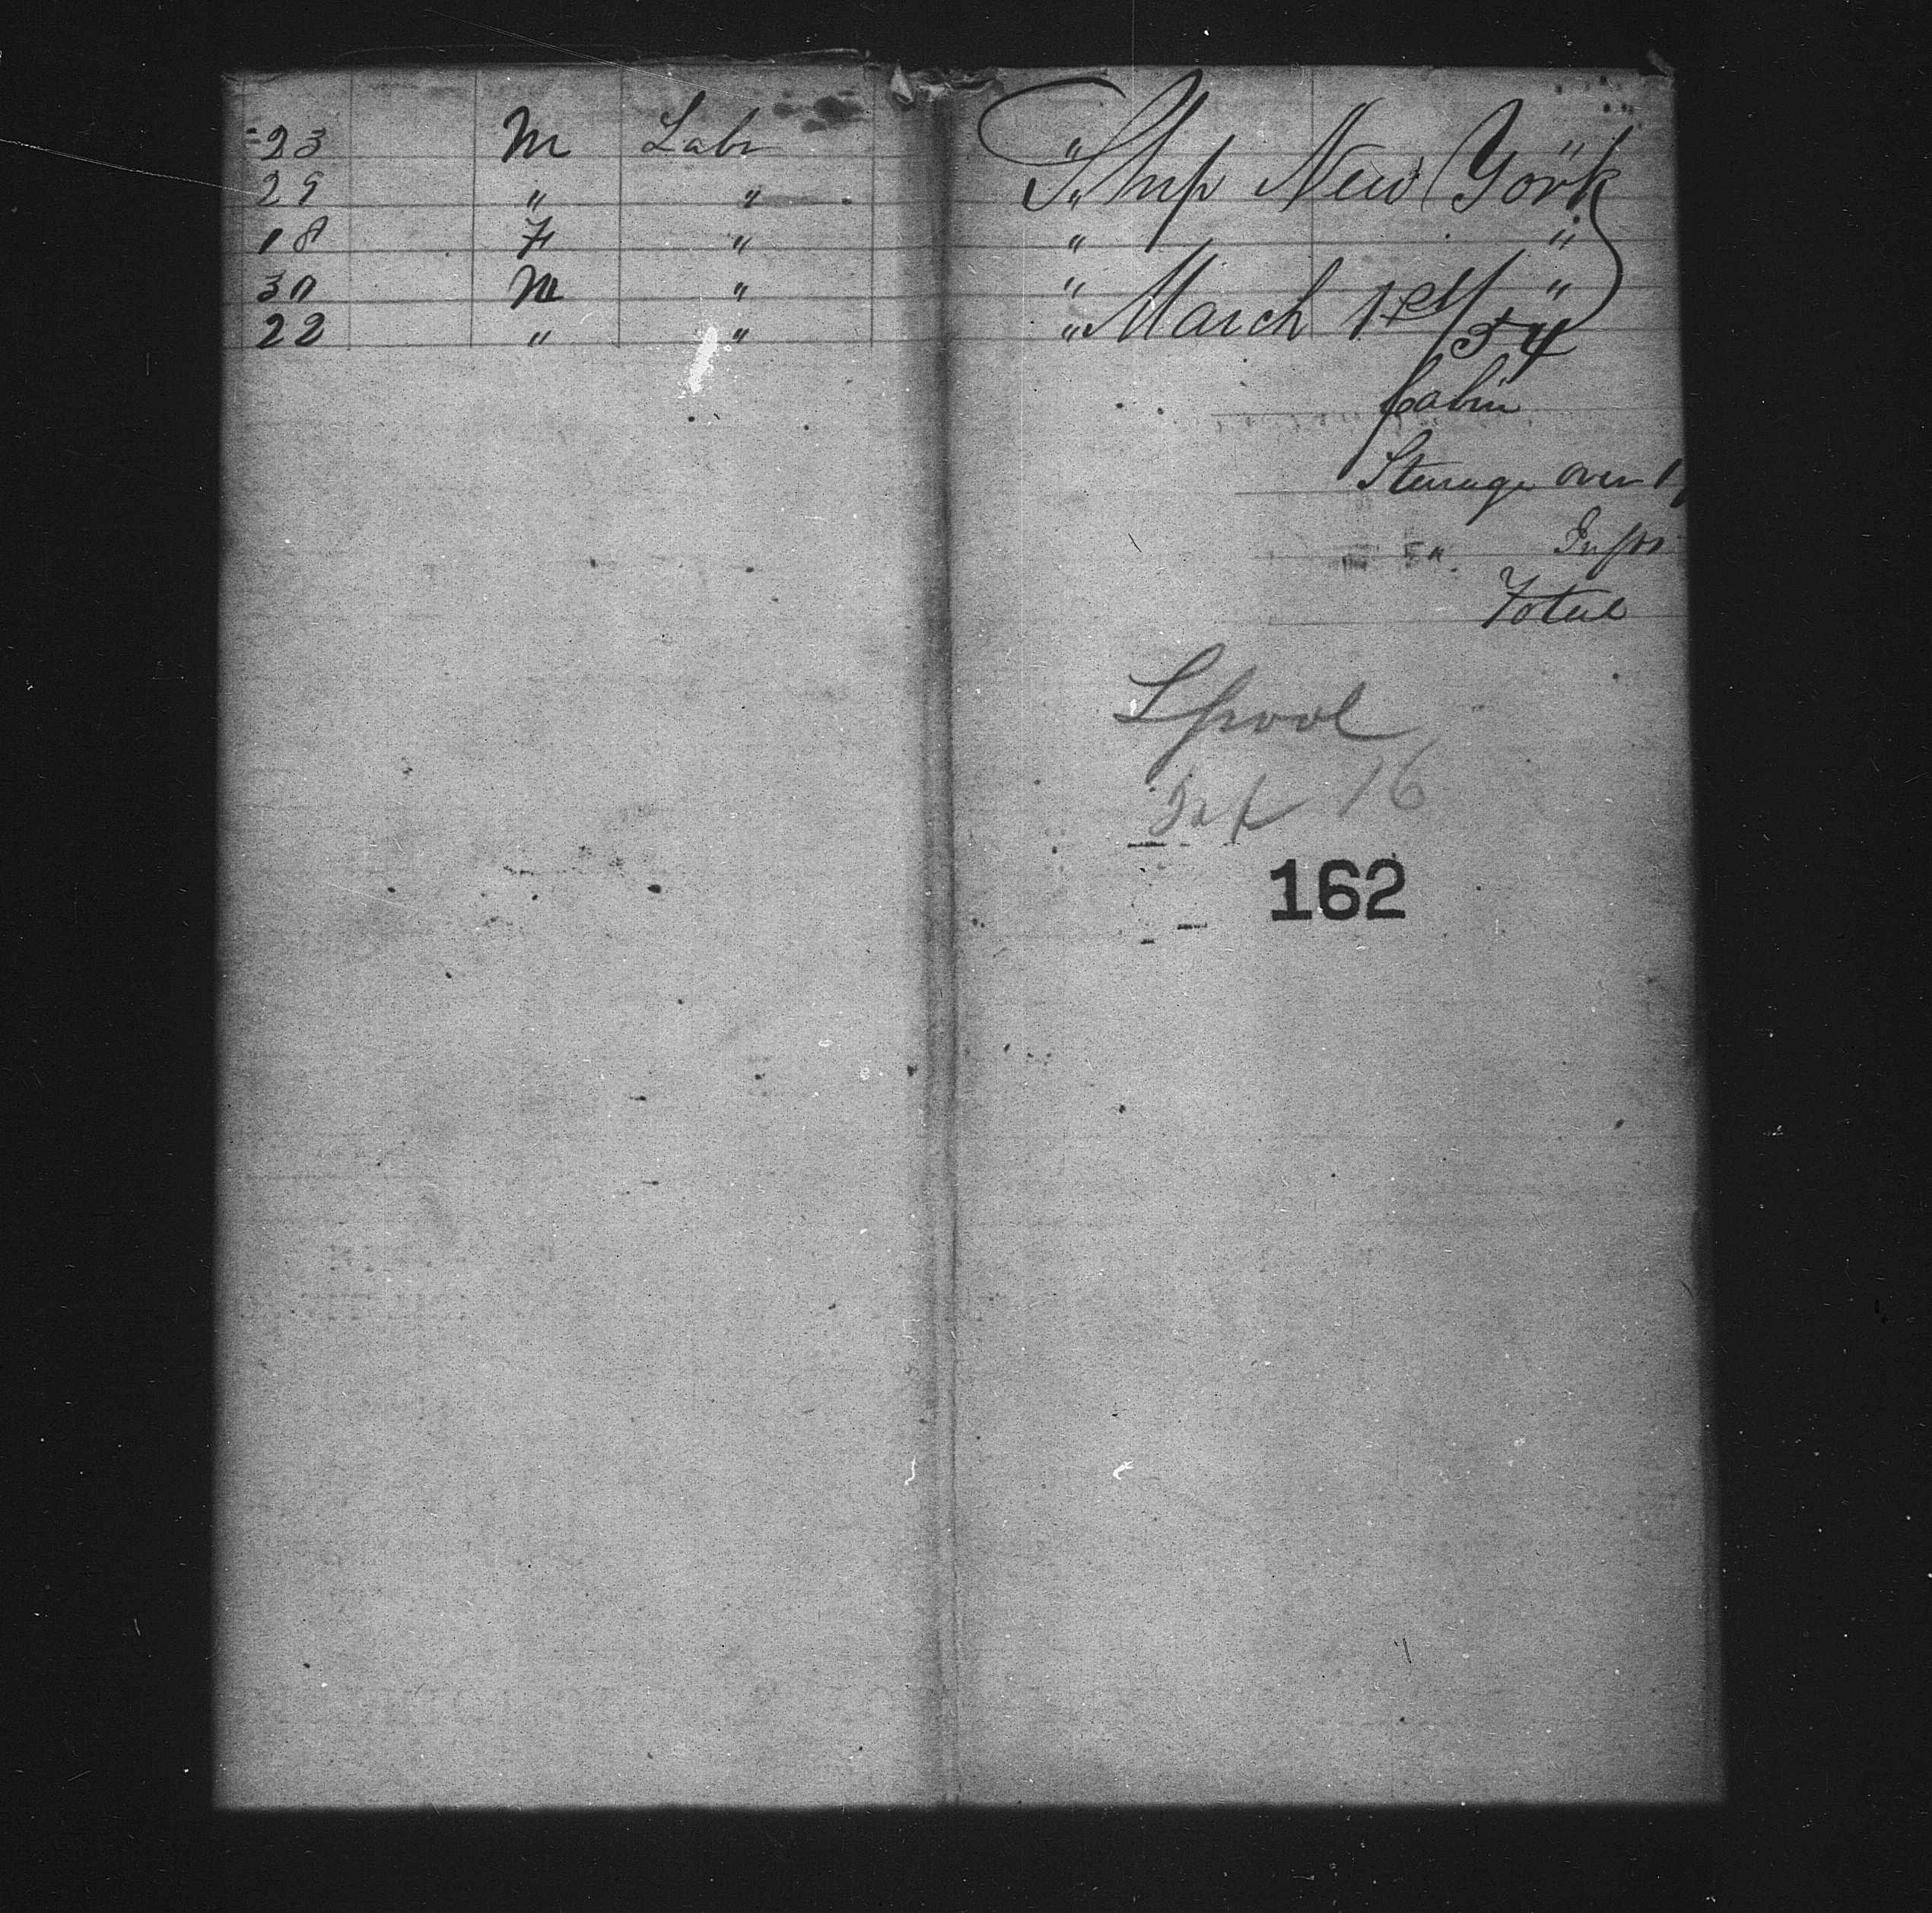 23 M Labr " "
29 " " " "
18 F " " "
30 M " " "
22 " " "
Ship New York
March 1st/54
Cabin
Steerage over 1
" Infts
Total
Lpool
16
162